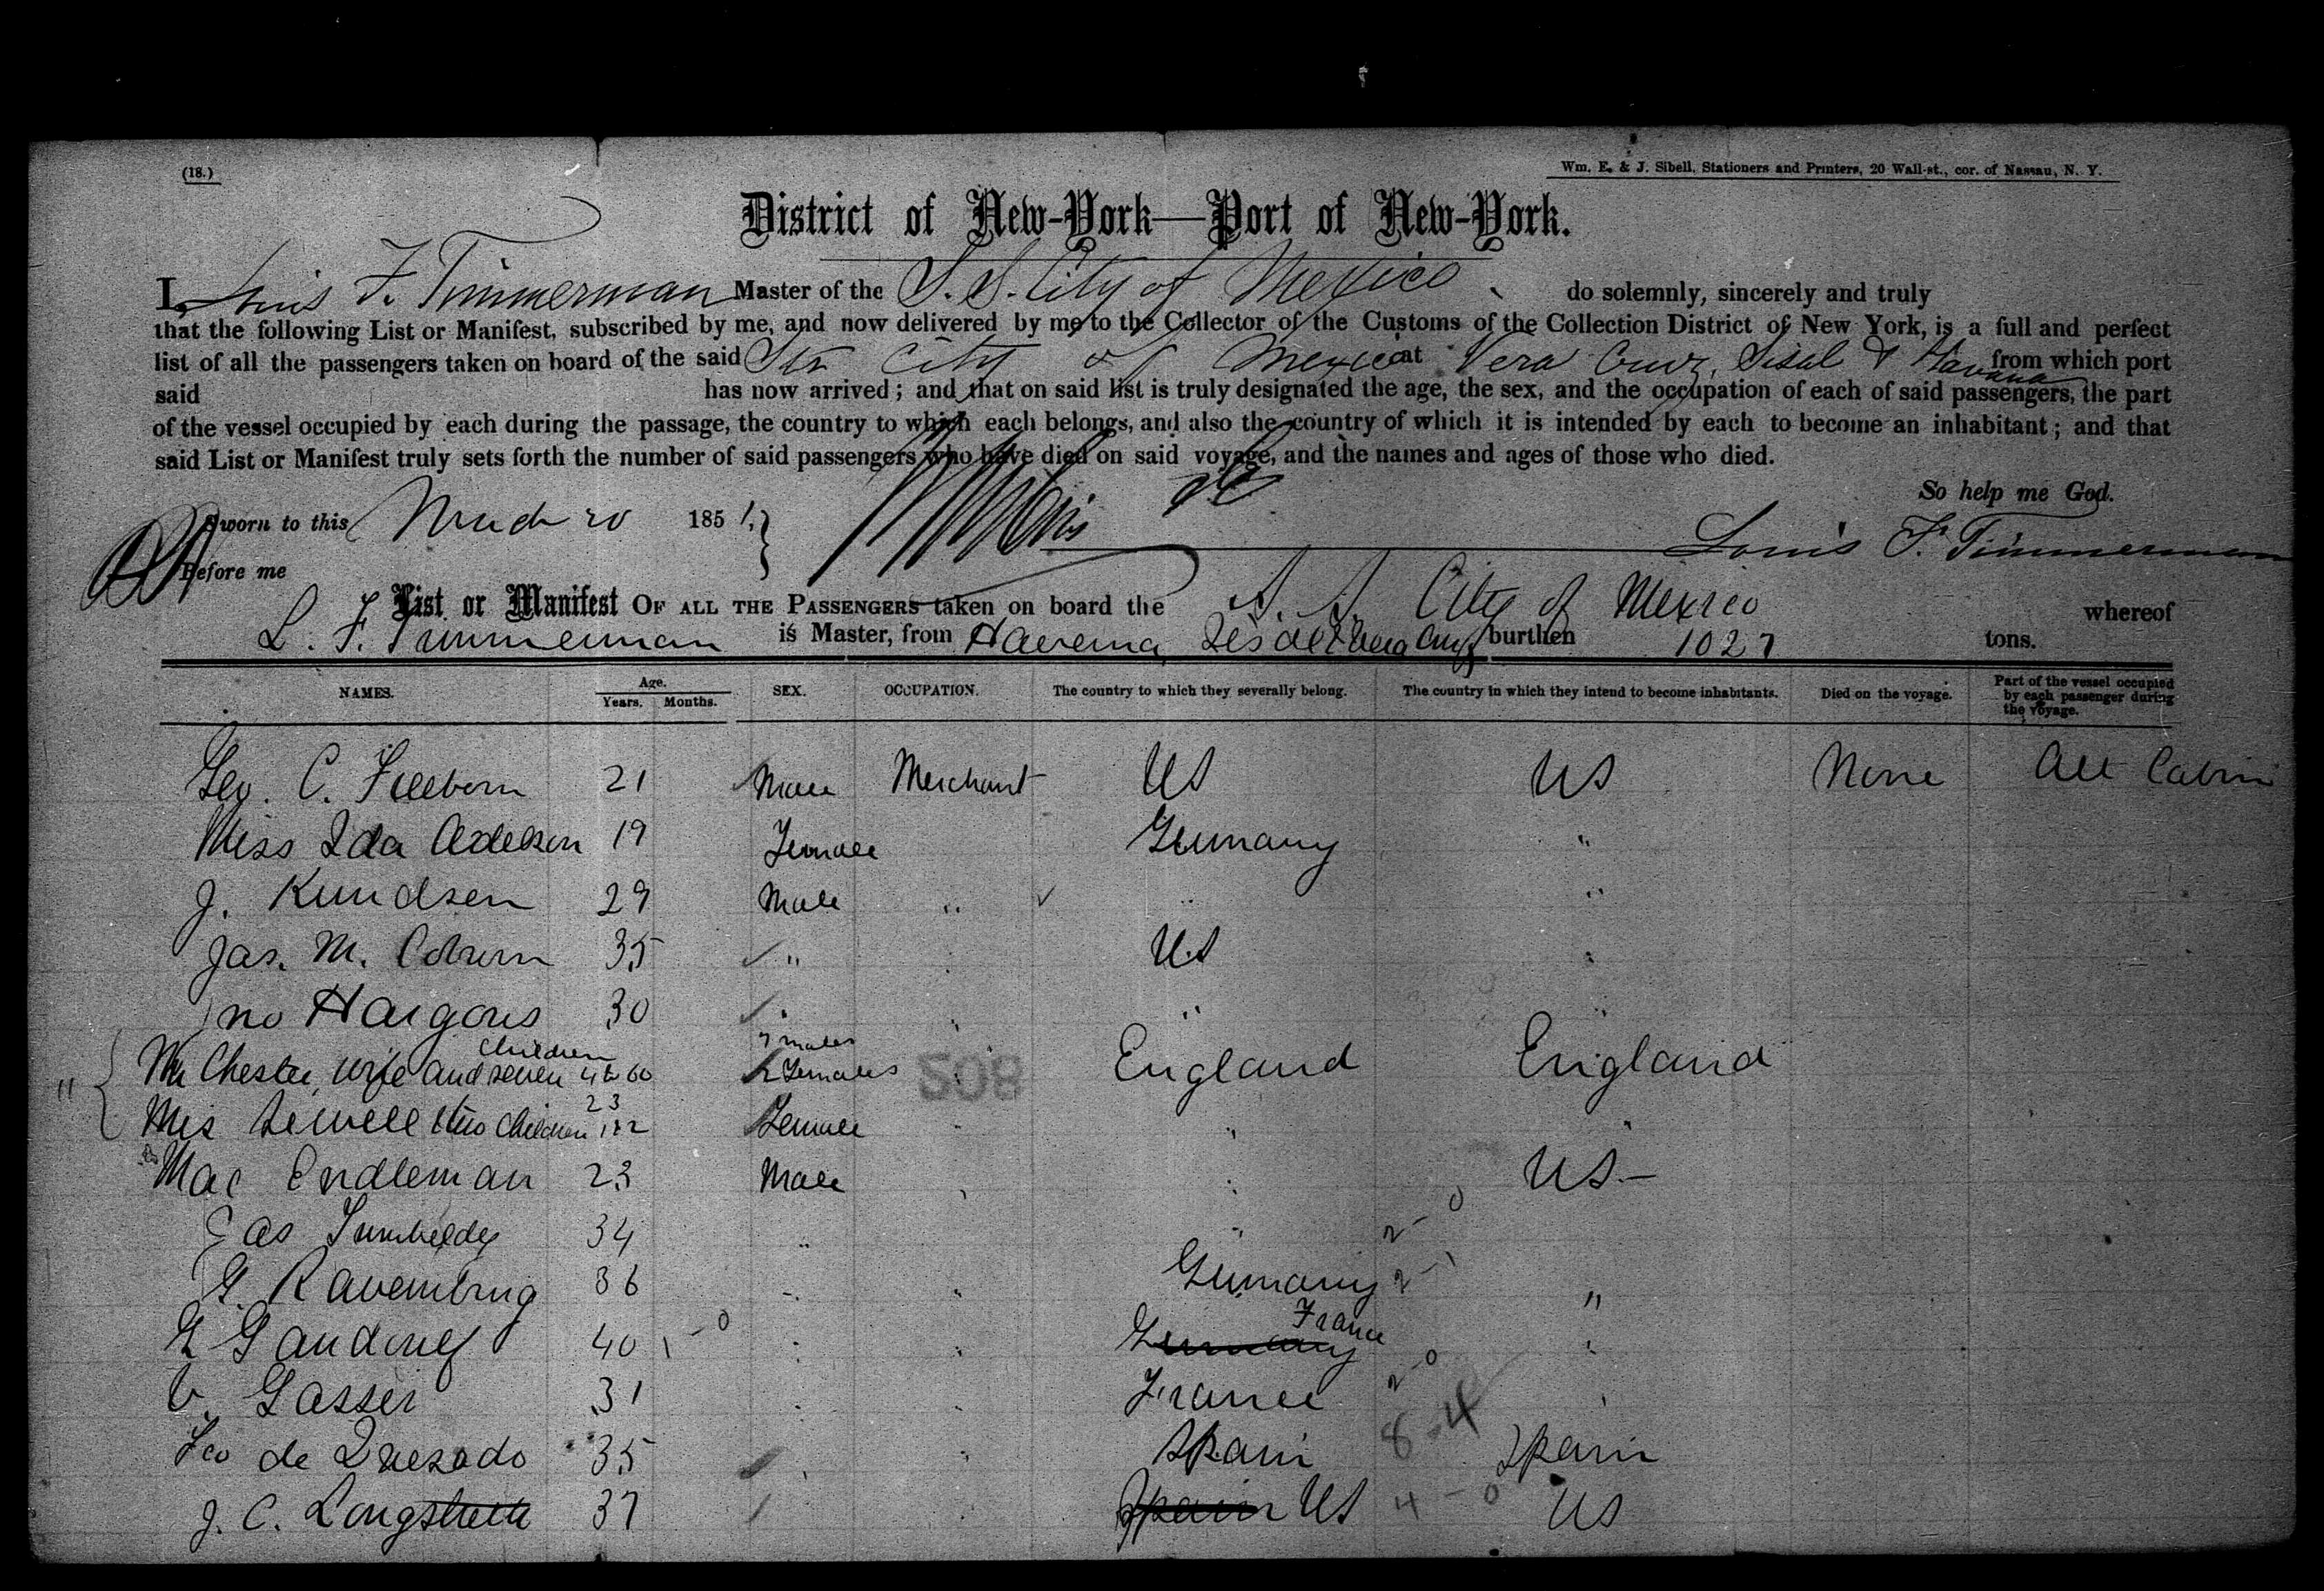 (18.)
Wm. E. & J. Sibell, Stationers and Printers, 20 Wall-st., cor. of Nassau, N. Y.
District of New-York—Port of New-York.
I, Louis F. Timmerman Master of the S. S. City of Mexico do solemnly, sincerely and truly
that the following List or Manifest, subscribed by me, and now delivered by me to the Collector of the Customs of the Collection District of New York, is a full and perfect
list of all the passengers taken on board of the said Str City of Mexico at Vera Cruz, Sisal & Havana from which port
said has now arrived; and that on said list is truly designated the age, the sex, and the occupation of each of said passengers, the part
of the vessel occupied by each during the passage, the country to which each belongs, and also the country of which it is intended by each to become an inhabitant; and that
said List or Manifest truly sets forth the number of said passengers who have died on said voyage, and the names and ages of those who died.
So help me God.
Sworn to this March 20 185
Louis F. Timmerman
Before me
List or Manifest OF ALL THE PASSENGERS taken on board the S. S. City of Mexico whereof
L. F. Timmerman is Master, from Havana burthen 1027 tons.
NAMES. Age. Years. Months. SEX. OCCUPATION. The country to which they severally belong. The country in which they intend to become inhabitants. Died on the voyage. Part of the vessel occupied by each passenger during the voyage.
Geo. C. Freeborn 21 Male Merchant US US None All Cabin
Miss Ida 19 Female Germany "
J. Knudsen 29 Male " " "
Jas. M. Coburn 35 " " U.S "
Jno Hargous 30 " " " "
Mr Chester, wife and seven children 4 to 60 7 males 2 Females " England England
508
Mrs Sewell & two children 23 1 & 2 Female " " "
Mac Endleman 23 Male " " US-
34 " " 2-0
G. Ravembrug 36 " " Germany 2-1 "
40 1-0 " " Germany France "
V. Gasser 31 " " France 2-0 "
Fco de Quesado 35 " " Spain 8-4 Spain
J. C. Longstrette 37 " Spain US 4-0 US